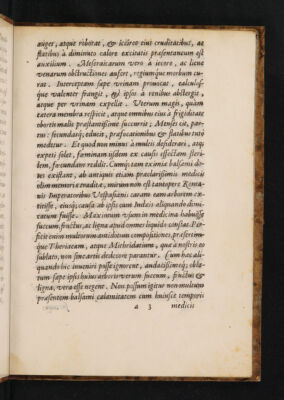 auget, atque roborat, & idcirco eius cruditatibus, ac
flatibus à diminuto calore excitatis præsentaneum est
auxilium. Meseraicarum verò à iecore, ac lienis
venarum obstructiones aufert, regiumque morbum cu-
rat. Interceptam sæpe vrinam prouocat, calculos-
que valenter frangit, & ipsos à renibus abstergit,
atque per vrinam expellit. Vterum magis, quàm
cætera membra respicit, atque omnibus eius à frigiditate
obortis malis præstantissimè succurrit; Menses ciet, par-
tum: fecundatque educit, præfocationibus & flatibus tutò
medetur. Et quod non minus à multis desideratur, atque
expeti solet, fæminam ijsdem ex causis effectam steri-
lem, fecundam reddit. Cùm tot tam eximiæ balsami do-
tes existant, ab antiquis etiam præclarissimis medicis
olim memoriæ traditæ, mirum non est tantopere Roma-
nis Imperatoribus Vespasianis caram eam arborem ex-
titisse, eiusque causa ab ipsis cum Iudæis aliquando dimi-
catum fuisse. Maximum vsum in medicina habuisse
succum, fructus, ac ligna apud omnes liquidò constat. Per-
ficit enim multorum antidotum compositiones, præsertim-
que Theriacam, atque Mithridatium, quæ à nostris eo
sublato, non sine artis dedecore parantur. Cùm hæc ali-
quando hic inueniri posse ignorent, audacissimeque obla-
tum sæpe ipsis huius arboris verum succum, fructus &
ligna, vera esse negent. Non possum igitur non multum
præsentem balsami calamitatem cum huiusce temporis
a 3 medicis